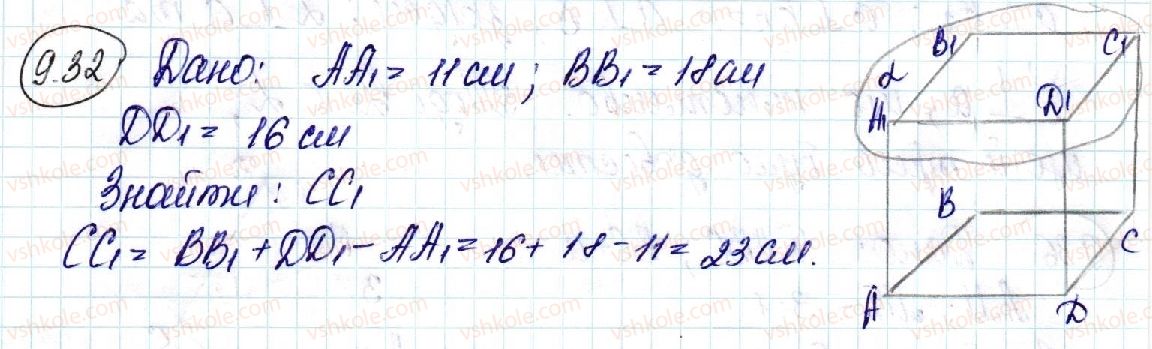 9.32 Дано: AA₁ = 11 см; BB₁ = 18 см
DD₁ = 16 см
Знайти: CC₁
CC₁ = BB₁ + DD₁ - AA₁ = 16 + 18 - 11 = 23 см.
B₁ C₁
α
A₁ D₁
B
C
A D
vshkole.com